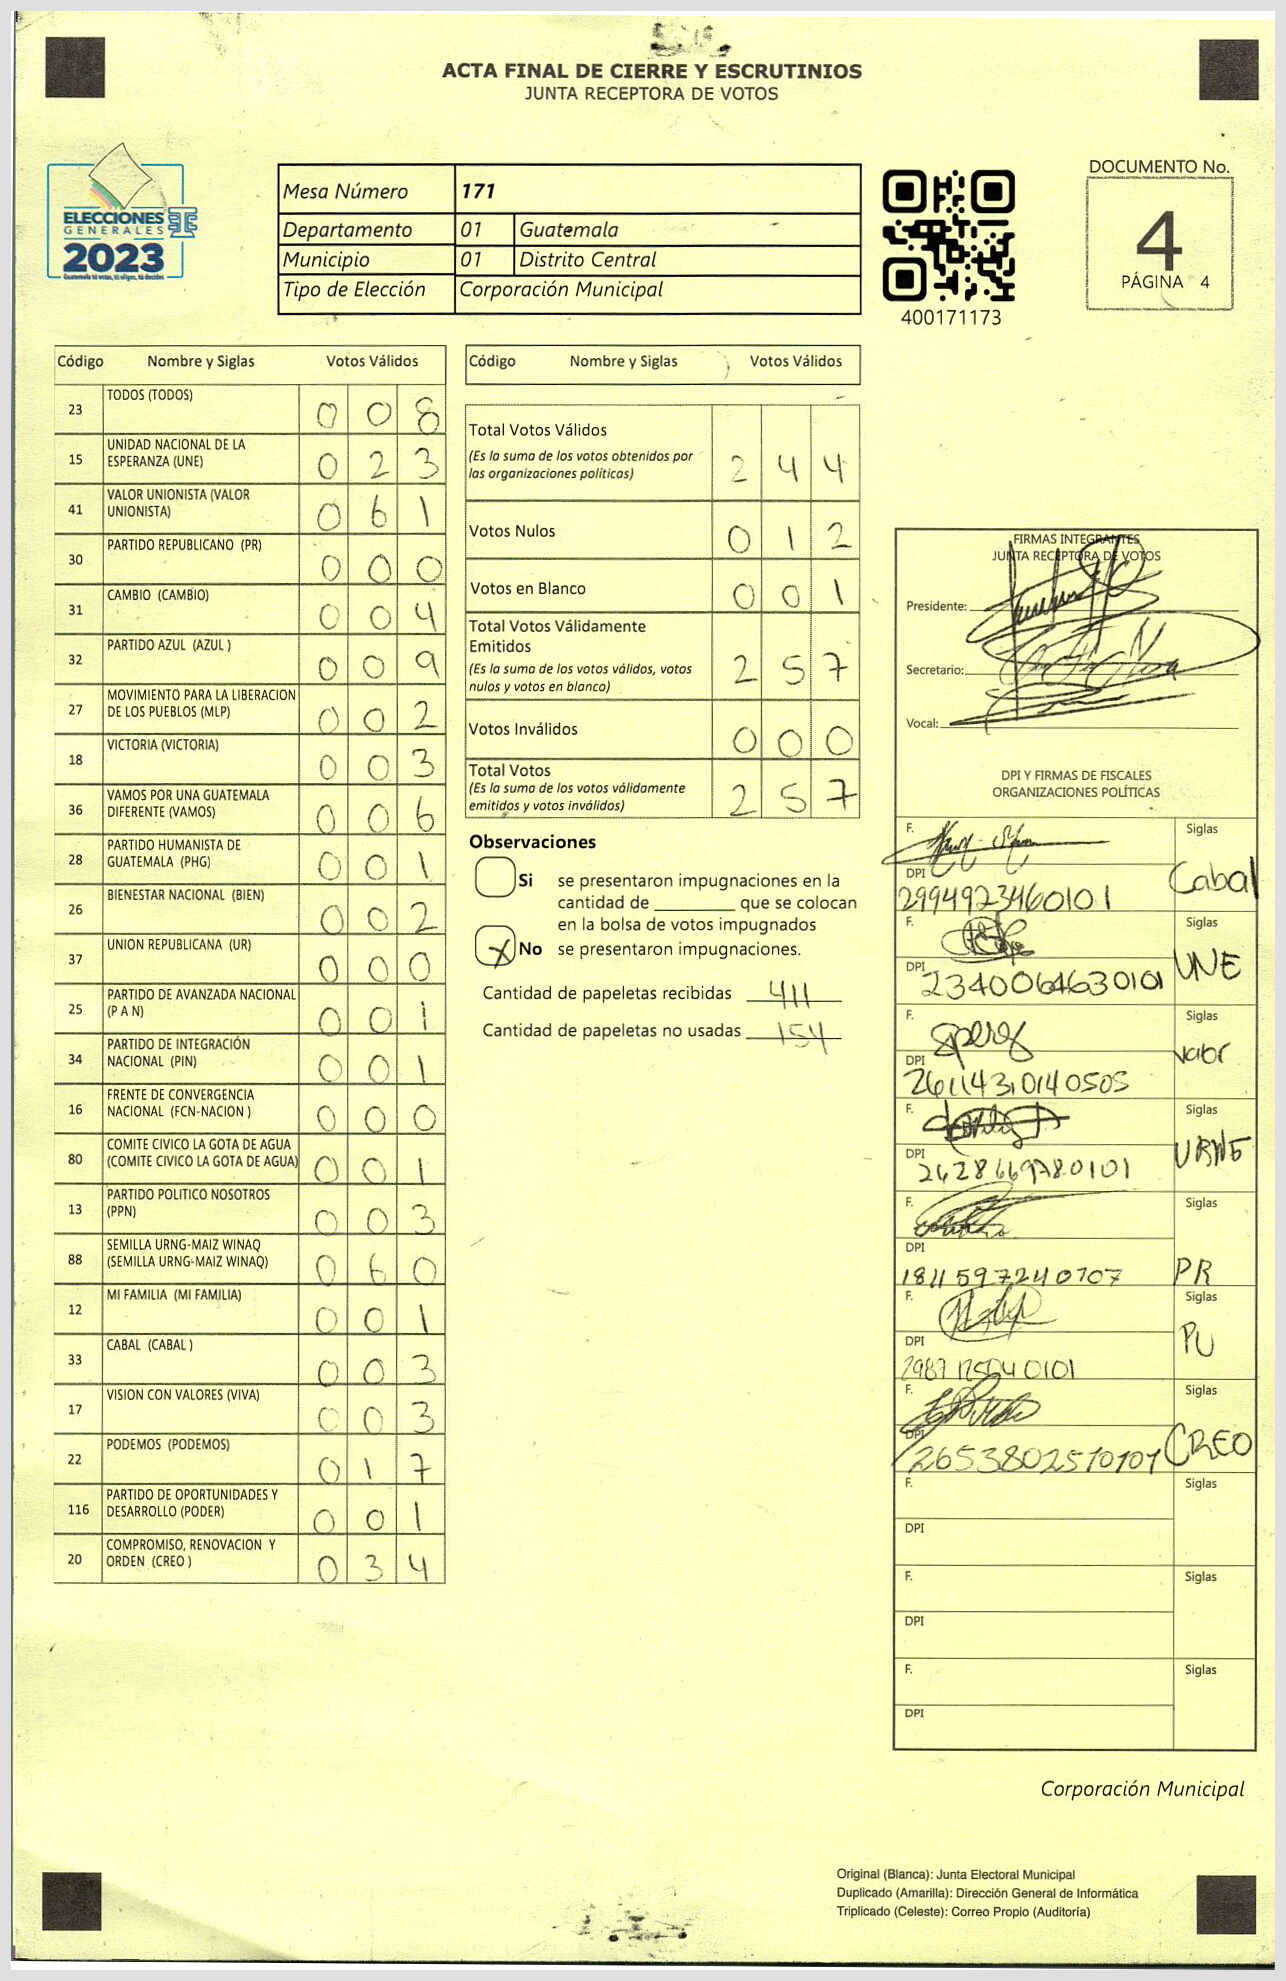 ACTA FINAL DE CIERRE Y ESCRUTINIOS
JUNTA RECEPTORA DE VOTOS
ELECCIONES
GENERALES
2023
Guatemala tú votas, tú eliges, tú decides
Mesa Número 171
Departamento 01 Guatemala
Municipio 01 Distrito Central
Tipo de Elección Corporación Municipal
400171173
DOCUMENTO No.
4
PÁGINA 4
Código Nombre y Siglas Votos Válidos
23 TODOS (TODOS) 0 0 8
15 UNIDAD NACIONAL DE LA
ESPERANZA (UNE) 0 2 3
41 VALOR UNIONISTA (VALOR
UNIONISTA) 0 6 1
30 PARTIDO REPUBLICANO (PR) 0 0 0
31 CAMBIO (CAMBIO) 0 0 4
32 PARTIDO AZUL (AZUL ) 0 0 9
27 MOVIMIENTO PARA LA LIBERACION
DE LOS PUEBLOS (MLP) 0 0 2
18 VICTORIA (VICTORIA) 0 0 3
36 VAMOS POR UNA GUATEMALA
DIFERENTE (VAMOS) 0 0 6
28 PARTIDO HUMANISTA DE
GUATEMALA (PHG) 0 0 1
26 BIENESTAR NACIONAL (BIEN) 0 0 2
37 UNION REPUBLICANA (UR) 0 0 0
25 PARTIDO DE AVANZADA NACIONAL
(P A N) 0 0 1
34 PARTIDO DE INTEGRACIÓN
NACIONAL (PIN) 0 0 1
16 FRENTE DE CONVERGENCIA
NACIONAL (FCN-NACION ) 0 0 0
80 COMITE CIVICO LA GOTA DE AGUA
(COMITE CIVICO LA GOTA DE AGUA) 0 0 1
13 PARTIDO POLITICO NOSOTROS
(PPN) 0 0 3
88 SEMILLA URNG-MAIZ WINAQ
(SEMILLA URNG-MAIZ WINAQ) 0 6 0
12 MI FAMILIA (MI FAMILIA) 0 0 1
33 CABAL (CABAL ) 0 0 3
17 VISION CON VALORES (VIVA) 0 0 3
22 PODEMOS (PODEMOS) 0 1 7
116 PARTIDO DE OPORTUNIDADES Y
DESARROLLO (PODER) 0 0 1
20 COMPROMISO, RENOVACION Y
ORDEN (CREO ) 0 3 4
Código Nombre y Siglas Votos Válidos
Total Votos Válidos
(Es la suma de los votos obtenidos por
las organizaciones políticas) 2 4 4
Votos Nulos 0 1 2
Votos en Blanco 0 0 1
Total Votos Válidamente
Emitidos
(Es la suma de los votos válidos, votos
nulos y votos en blanco) 2 5 7
Votos Inválidos 0 0 0
Total Votos
(Es la suma de los votos válidamente
emitidos y votos inválidos) 2 5 7
Observaciones
Si se presentaron impugnaciones en la
cantidad de ________ que se colocan
en la bolsa de votos impugnados
X No se presentaron impugnaciones.
Cantidad de papeletas recibidas 411
Cantidad de papeletas no usadas 154
FIRMAS INTEGRANTES
JUNTA RECEPTORA DE VOTOS
Presidente:
Secretario:
Vocal:
DPI Y FIRMAS DE FISCALES
ORGANIZACIONES POLÍTICAS
F. Siglas
DPI Cabal
2994923460101
F. Siglas
DPI UNE
2340064630101
F. Siglas
DPI valor
26114310140505
F. Siglas
DPI
2628669780101
F. Siglas
DPI
1811597240707 PR
F. Siglas
DPI PU
F. Siglas
DPI CREO
2653802510101
F. Siglas
DPI
F. Siglas
DPI
F. Siglas
DPI
Corporación Municipal
Original (Blanca): Junta Electoral Municipal
Duplicado (Amarilla): Dirección General de Informática
Triplicado (Celeste): Correo Propio (Auditoría)